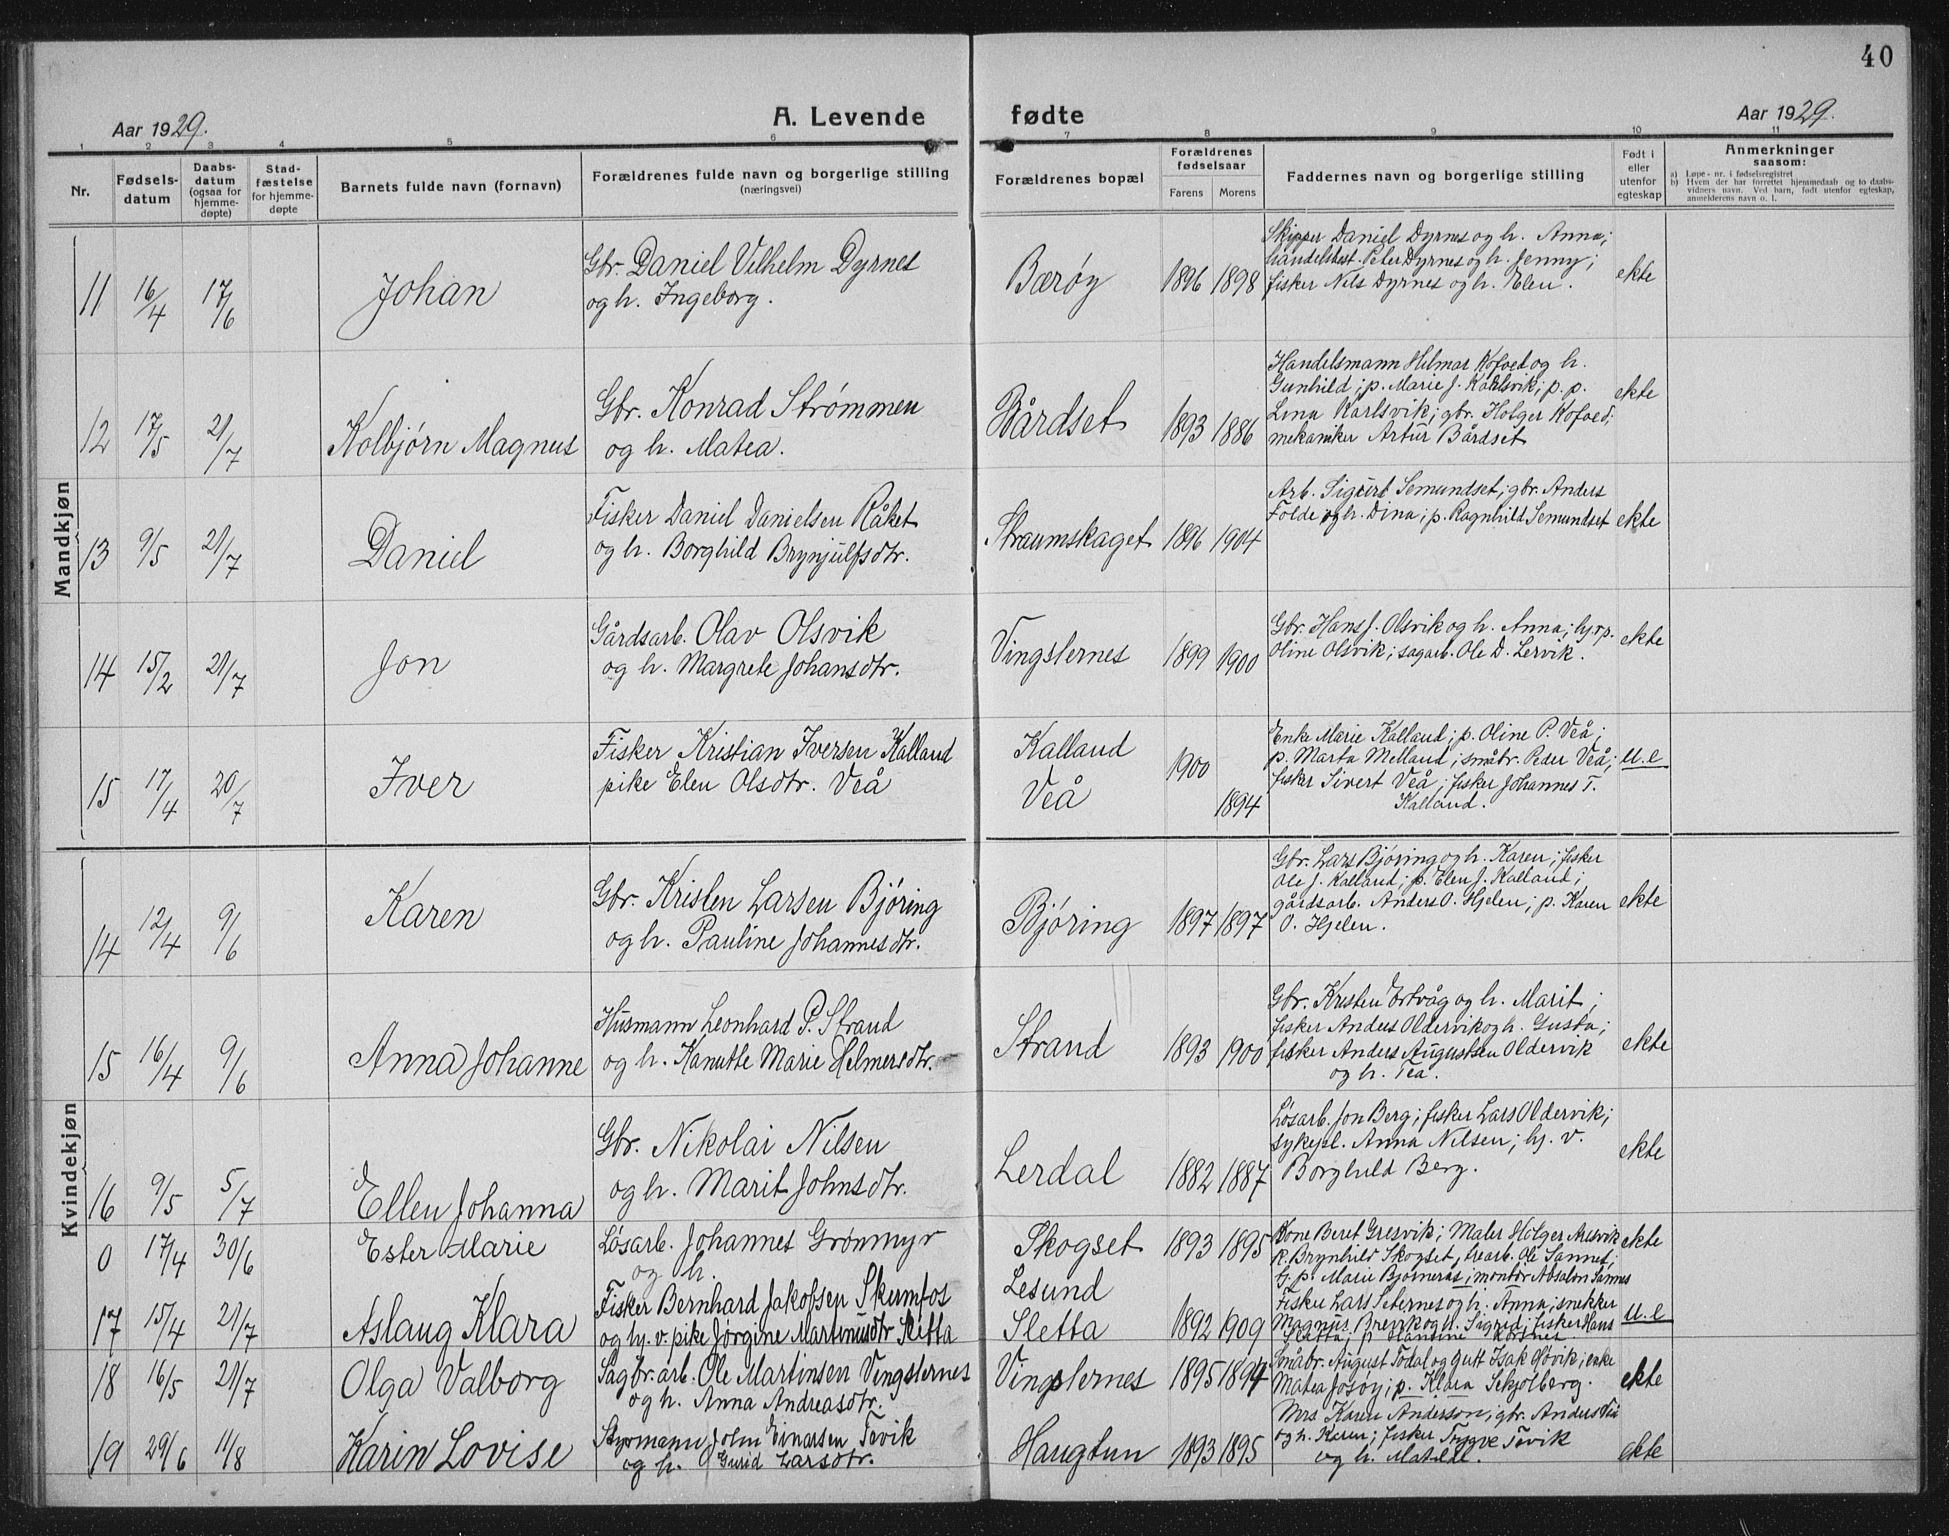 40
Aar 1929.
A. Levende fødte
Aar 1929.
1 2 3 4 5 6 7 8 9 10 11
Nr.
Fødsels-
datum
Daabs-
datum
(ogsaa for
hjemme-
døpte)
Stad-
fæstelse
for hjemme-
døpte
Barnets fulde navn (fornavn)
Forældrenes fulde navn og borgerlige stilling
(næringsvei)
Forældrenes bopæl
Forældrenes
fødselsaar
Farens Morens
Faddernes navn og borgerlige stilling
Født i
eller
utenfor
egteskap
Anmerkninger
saasom:
a) Løpe-nr. i fødselsregistret
b) Hvem der har forrettet hjemmedaab og to daabs-
vidners navn. Ved barn, født utenfor egteskap,
anmelderens navn o. l.
Mandkjøn
11 16/4 17/6 Johan
Gbr. Daniel Vilhelm Dyrnes
og h. Ingeborg.
Bærøy 1896 1898
Skipper Daniel Dyrnes og h. Anna;
handelsbest. Peter Dyrnes og h. Jenny;
fisker Nils Dyrnes og h. Elen.
ekte
12 17/5 21/7 Kolbjørn Magnus
Gbr. Konrad Strømmen
og h. Matea.
Bårdset 1893 1886
Handelsmann Hilmar Kofoed og h.
Gunhild; p. Marie J. Karlsvik; p. p.
Lina Karlsvik; gbr. Holger Kofoed;
mekaniker Artur Bårdset
ekte
13 9/5 21/7 Daniel
Fisker Daniel Danielsen Råket
og h. Borghild Brynjulfsdtr.
Straumskaget 1896 1904
Arb. Sigurt Semundset; gbr. Anders
Folde og h. Dina; p. Ragnhild Semundset
ekte
14 15/2 21/7 Jon
Gårdsarb. Olav Olsvik
og h. Margrete Johansdtr.
Vingsternes 1899 1900
Gbr. Hans J. Olsvik og h. Anna; hj. v. p.
Oline Olsvik; sagarb. Ole D. Lervik.
ekte
15 17/4 20/7 Iver
Fisker Kristian Iversen Kalland
pike Elen Olsdtr. Veå
Kalland
Veå
1900
1894
Enke Marie Kalland; p. Oline P. Veå;
p. Marta Melland; småbr. Peder Veå;
fisker Sivert Veå; fisker Johannes T.
Kalland.
u.e
Kvindekjøn
14 12/4 9/6 Karen
Gbr. Kristen Larsen Bjøring
og h. Pauline Johannesdtr.
Bjøring 1897 1897
Gbr. Lars Bjøring og h. Karen; fisker
Ole J. Kalland; p. Elen J. Kalland;
gårdsarb. Anders O. Hjelen; p. Karen
O. Hjelen.
ekte
15 16/4 9/6 Anna Johanne
Husmann Leonhard P. Strand
og h. Kanutte Marie Helmersdtr.
Strand 1893 1900
Gbr. Kristen Ertvåg og h. Marit;
fisker Anders Oldervik og h. Gusta;
fisker Anders Augustsen Oldervik
og h. Tea.
ekte
16 9/5 5/7 Ellen Johanna
Gbr. Nikolai Nilsen
og h. Marit Johnsdtr.
Lerdal 1882 1887
Løsarb. Jon Berg; fisker Lars Oldervik;
sykepl. Anna Nilsen; hj. v.
Borghild Berg.
ekte
0 17/4 30/6 Ester Marie
Løsarb. Johannes Grønmyr
og h.
Skogset 1893 1895
Kone Beret Gresvik; Maler Holger Aresvik
k. Brynhild Skogset, trearb. Ole Sannes;
G. p. Marie Bjørnerås; montør Absalon Sannes
ekte
17 15/4 21/7 Aslaug Klara
Fisker Bernhard Jakobsen Skumfos
og hj. v. pike Jørgine Martinusdtr Sletta
Lesund
Sletta
1892 1909
Fisker Lars Seternes og h. Anna; snekker
Magnus Brevik og h. Sigrid; fisker Hans
Sletta; p Hansine Korsnes
u.e
18 16/5 21/7 Olga Valborg
Sagbr. arb. Ole Martinsen Vingsternes
og h. Anna Andreasdtr.
Vingsternes 1895 1894
Småbr. August Todal og gutt Isak Gjøvik; enke
Matea Josøy; p. Klara Skjølberg.
ekte
19 29/6 11/8 Karin Lovise
Styrmann John Einarsen Tevik
og h. Gurid Larsdtr.
Haugtun 1893 1895
Mrs Karen Anderson; gbr. Anders
og h. Karen; fisker Trygve Tevik
og h. Matilde.
ekte